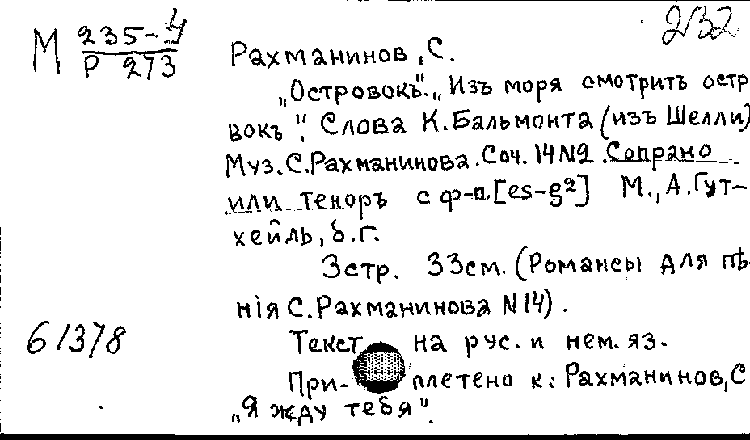 232
М 235-4
Р 273
Рахманинов, С.
„Островокъ". „Изъ моря смотритъ остр
вокъ". Слова К. Бальмонта (изъ Шелли)
Муз. С. Рахманинова. Соч. 14 N2 Сопрано
или теноръ с ф-п. [es-g²] М., А. Гут-
хейль, б. г.
3 стр. 33 см. (Романсы для пѣ-
нія С. Рахманинова N 14).
61378
Текст на рус. и нем. яз.
При- плетено к: Рахманинов, С
„Я жду тебя".